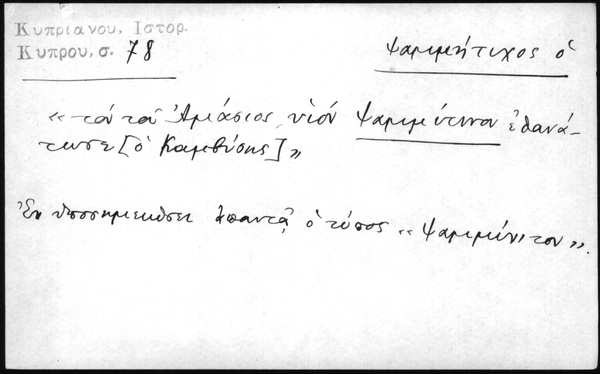 Κυπριανου, Ιστορ.
Κυπρου, σ. 78
Ψαμμήτιχος ὁ
«τὸν τοῦ Ἀμάσιος υἱὸν Ψαμμύτιτον ἐθανά-
τωσε [ὁ Καμβύσης]»
Ἐν ὑποσημειώσει ἀπαντᾷ ὁ τύπος «Ψαμμύνιτον».